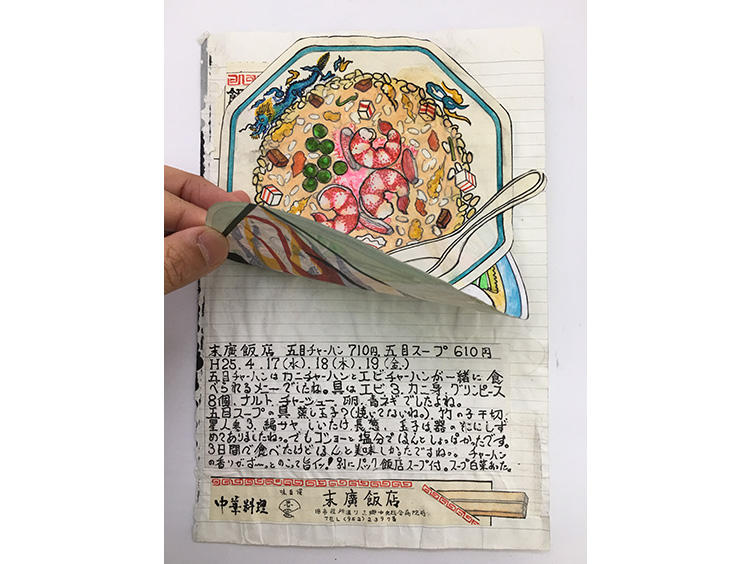 末廣飯店 五目チャーハン710円、五目スープ610円
H25.4.17(水).18(木).19(金)
五目チャーハンはカニチャーハンとエビチャーハンが一緒に食
べられるメニーでしたね。具はエビ3、カニ身、グリンピース
8個、ナルト、チャーシュー、卵、青ネギでしたよね。
五目スープの具、蒸し玉子?(焼いてないね。)、竹の子千切、
里人巻3、絹サヤ、しいたけ、長葱、玉子は器のそこにしず
めてありましたねっ。でもゴショーと塩分でほんとしょっぱかったです。
3日間で食べたけどほんと美味しかったですねっ。チャーハン
の香りがすーっとのこって旨イッ!別にパック飯店スープ付。スープ白菜あった。
中華料理
味自慢
末廣飯店
旧市役所通り三郷中央総合病院前